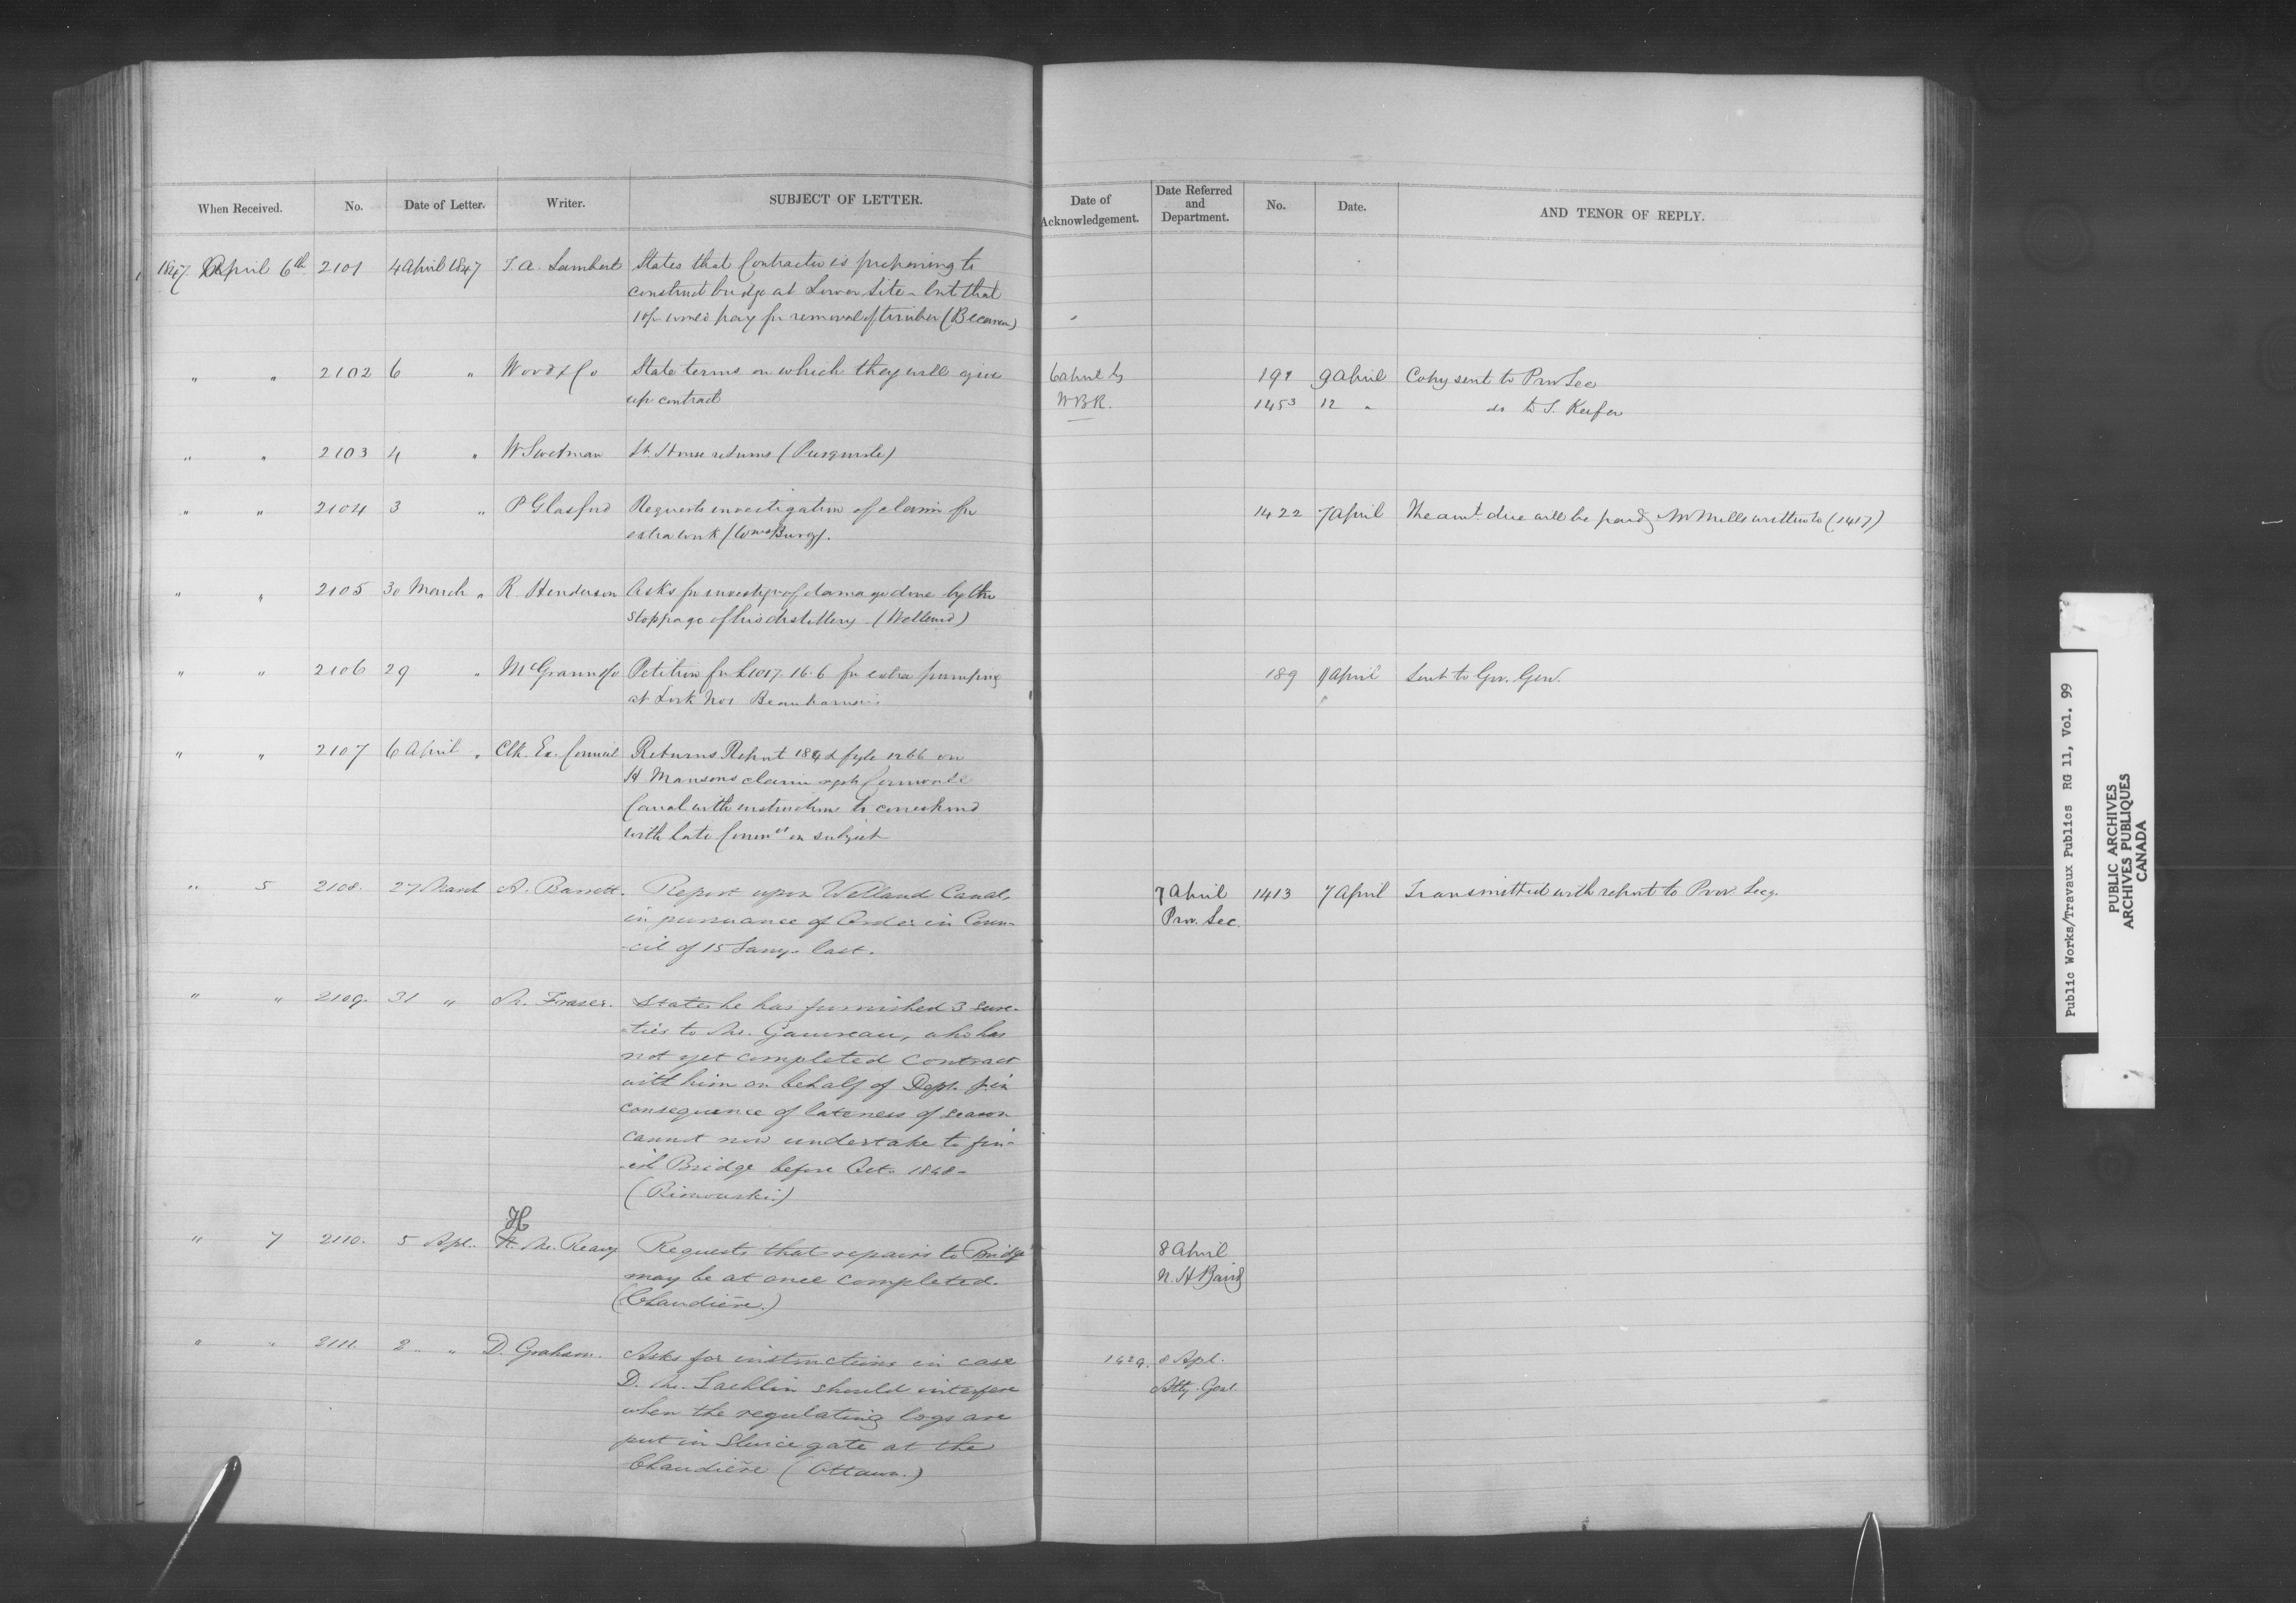 When Received. No. Date of Letter. Writer. SUBJECT OF LETTER. Date of Acknowledgement. Date Referred and Department. No. Date. AND TENOR OF REPLY.
1847 April 6th 2101 4 April 1847 T. A. Lambert States that Contractor is preparing to
construct bridge at Lower Site - but that
pay for removal of timber
" " 2102 6 " Wood & Co State terms on which they will give 6 April by 191 9 April Copy sent to Prov Sec
up contract W B R. 1453 12 " do to S. Keefer
" " 2103 4 " W Swetman Lt. House returns
" " 2104 3 " P Glasford Requests investigation of claim for 1422 7 April The amt. due will be paid, Mr Mills written to (1417)
extra work (Wmsburg).
" " 2105 30 March " R Henderson Asks for investign of damage done by the
stoppage of his distillery (Welland)
" " 2106 29 " McGrann & Co Petition for £1017. 16. 6 for extra pumping 189 9 April Sent to Gov. Genl.
at Lock No 1 Beauharnois
" " 2107 6 April " Clk. Ex. Council Returns Report & fyle 1266 on
H Mansons claim Cornwall
Canal with instructions to correspond
with late on subject
" 5 2108. 27 March A. Barrett. Report upon Welland Canal, 7 April 1413 7 April Transmitted with report to Prov. Secy.
in pursuance of Order in Coun- Prov. Sec.
-cil of 15 Jany. last.
" " 2109. 31 " Fraser. States he has furnished 3 sure-
-ties to Mr. Gauvreau, who has
not yet completed contract
with him on behalf of Dept. & in
consequence of lateness of season
cannot now undertake to fin-
-ish Bridge before Oct. 1848 -
(Rimouski.)
H
" 7 2110. 5 Apl. Mc. Reavy Requests that repairs to Bridge 8 April
may be at once completed. N. H Baird
(Chaudière.)
" " 2111. 2 " D. Graham. Asks for instructions in case 1429. 8 Apl.
D. Mc. Lachlin should interfere Atty. Genl.
when the regulating logs are
put in Sluice gate at the
Chaudière (Ottawa.)
Public Works/Travaux Publics RG 11, Vol. 99
PUBLIC ARCHIVES
ARCHIVES PUBLIQUES
CANADA